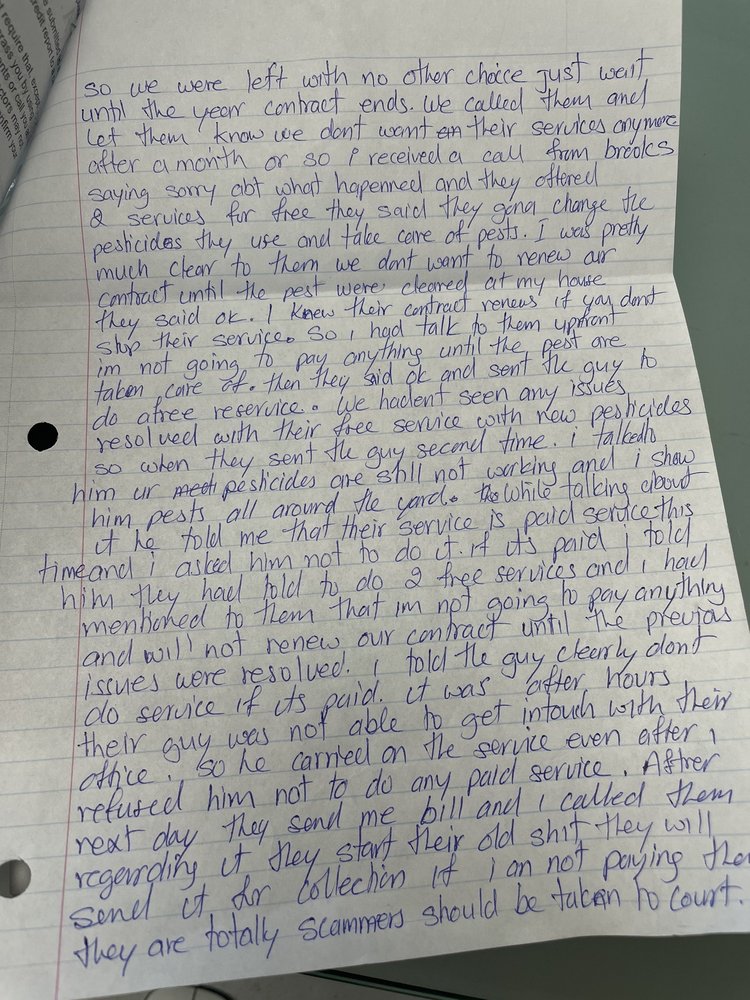 require that, excep
submitt
credit report to
rass you by
nts or call you at
ctors may no
nfirm you
so we were left with no other choice just wait
until the year contract ends. We called them and
let them know we dont want their services anymore
after a month or so I received a call from breoks
saying sorry abt what hapenned and they offered
2 services for free they said they gona change the
pesticides they use and take care of pests. I was pretty
much clear to them we dont want to renew our
contract until the pest were cleared at my house
they said ok. I knew their contract renews if you dont
stop their service. So i had talk to them upfront
im not going to pay anything until the pest are
taken care of. then they said ok and sent the guy to
do a free reservice. We hadent seen any issues
resolved with their free service with new pesticides
so when they sent the guy second time. i talked to
him ur pesticides are still not working and i show
him pests all around the yard. While talking about
it he told me that their service is paid service this
time and i asked him not to do it. if its paid i told
him they had told to do 2 free services and i had
mentioned to them that im not going to pay anything
and will not renew our contract until the previous
issues were resolved. i told the guy clearly dont
do service if its paid. it was after hours
their guy was not able to get intouch with their
office. So he carried on the service even after i
refused him not to do any paid service. After
next day they send me bill and i called them
regarding it they start their old shit they will
send it for collection if i am not paying the
they are totally scammers should be taken to court.